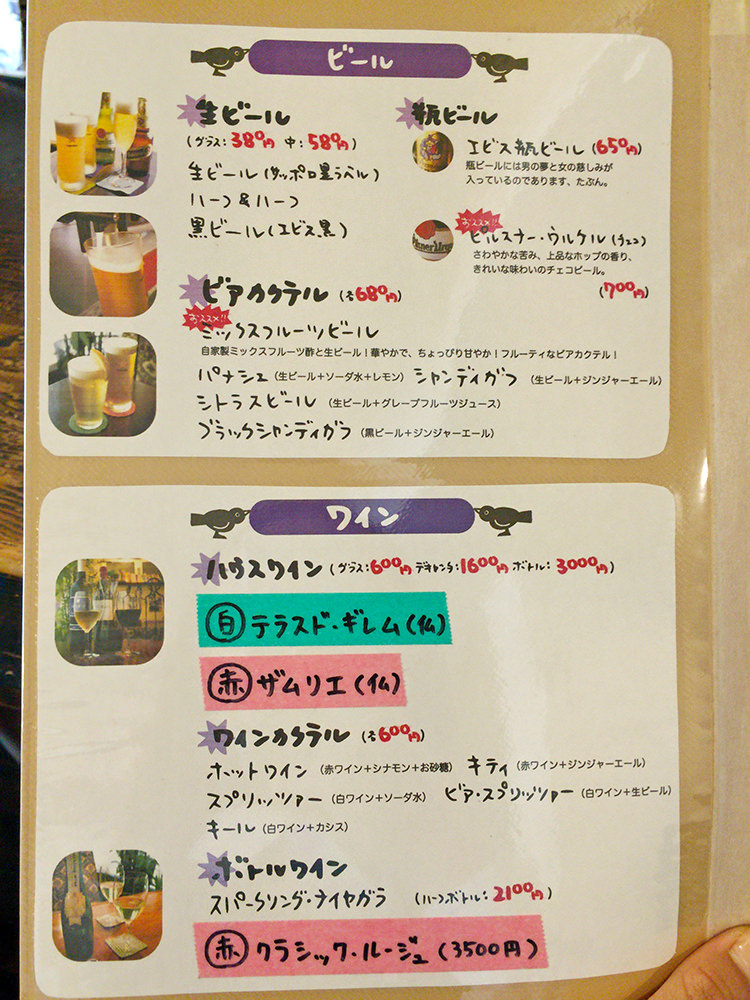 ビール
生ビール
(グラス:380円 中:580円)
生ビール(サッポロ黒ラベル)
ハーフ&ハーフ
黒ビール(エビス黒)
瓶ビール
エビス瓶ビール(650円)
瓶ビールには男の夢と女の慈しみが
入っているのであります、たぶん。
おススメ!!
ピルスナー・ウルケル(チェコ)
さわやかな苦み、上品なホップの香り、
きれいな味わいのチェコビール。
(700円)
ビアカクテル(各680円)
おススメ!!
ミックスフルーツビール
自家製ミックスフルーツ酢と生ビール!華やかで、ちょっぴり甘やか!フルーティなビアカクテル!
パナシェ(生ビール+ソーダ水+レモン) シャンディガフ(生ビール+ジンジャーエール)
シトラスビール(生ビール+グレープフルーツジュース)
ブラックシャンディガフ(黒ビール+ジンジャーエール)
ワイン
ハウスワイン(グラス:600円 デキャンタ:1600円 ボトル:3000円)
白 テラスド・ギレム(仏)
赤 ザムリエ(仏)
ワインカクテル(各600円)
ホットワイン(赤ワイン+シナモン+お砂糖) キティ(赤ワイン+ジンジャーエール)
スプリッツァー(白ワイン+ソーダ水) ビア・スプリッツァー(白ワイン+生ビール)
キール(白ワイン+カシス)
ボトルワイン
スパークリング・ナイヤガラ (ハーフボトル:2100円)
赤 クラシック・ルージュ(3500円)